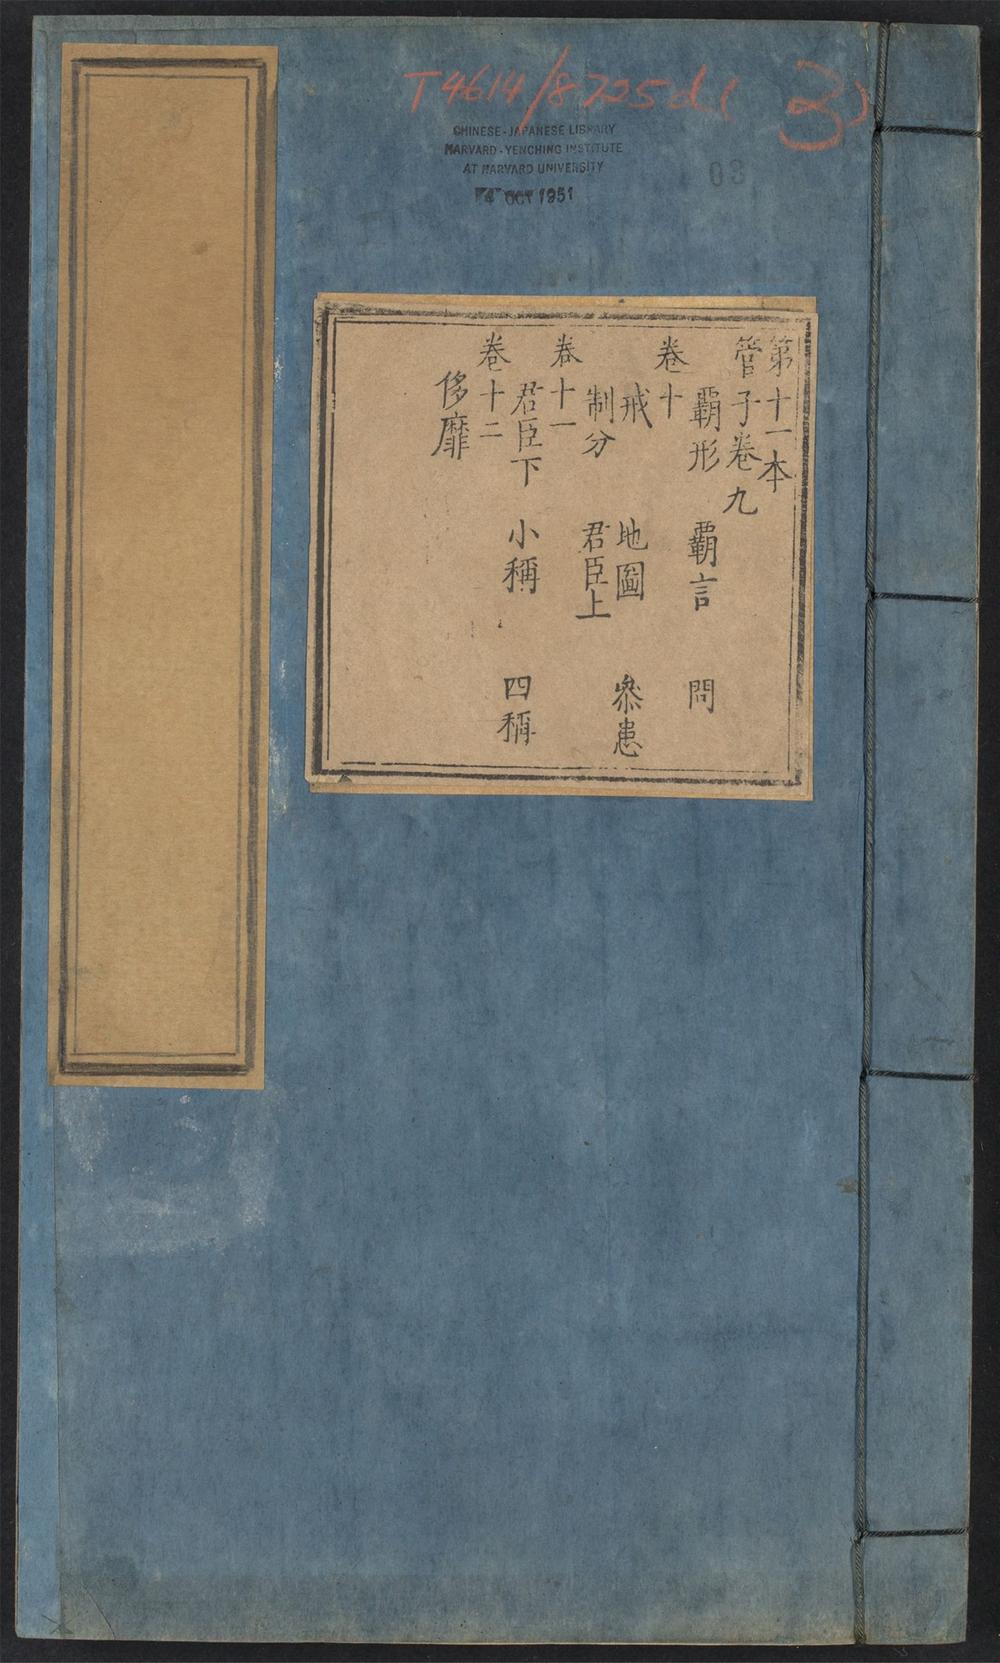 T4614/8725d(3)
CHINESE-JAPANESE LIBRARY
HARVARD-YENCHING INSTITUTE
AT HARVARD UNIVERSITY
4 OCT 1951
03
第十一本
管子卷九
覇形 覇言 問
卷十
戒 地圖 叅患
制分 君臣上
卷十一
君臣下 小稱 四稱
卷十二
侈靡